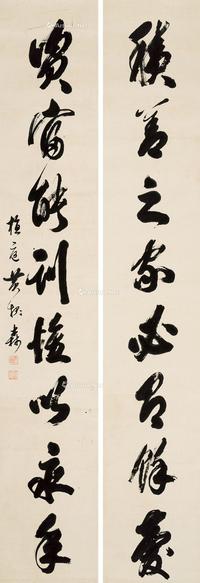 積善之家必有餘慶
資富能訓惟以永年
植庭黃槐森